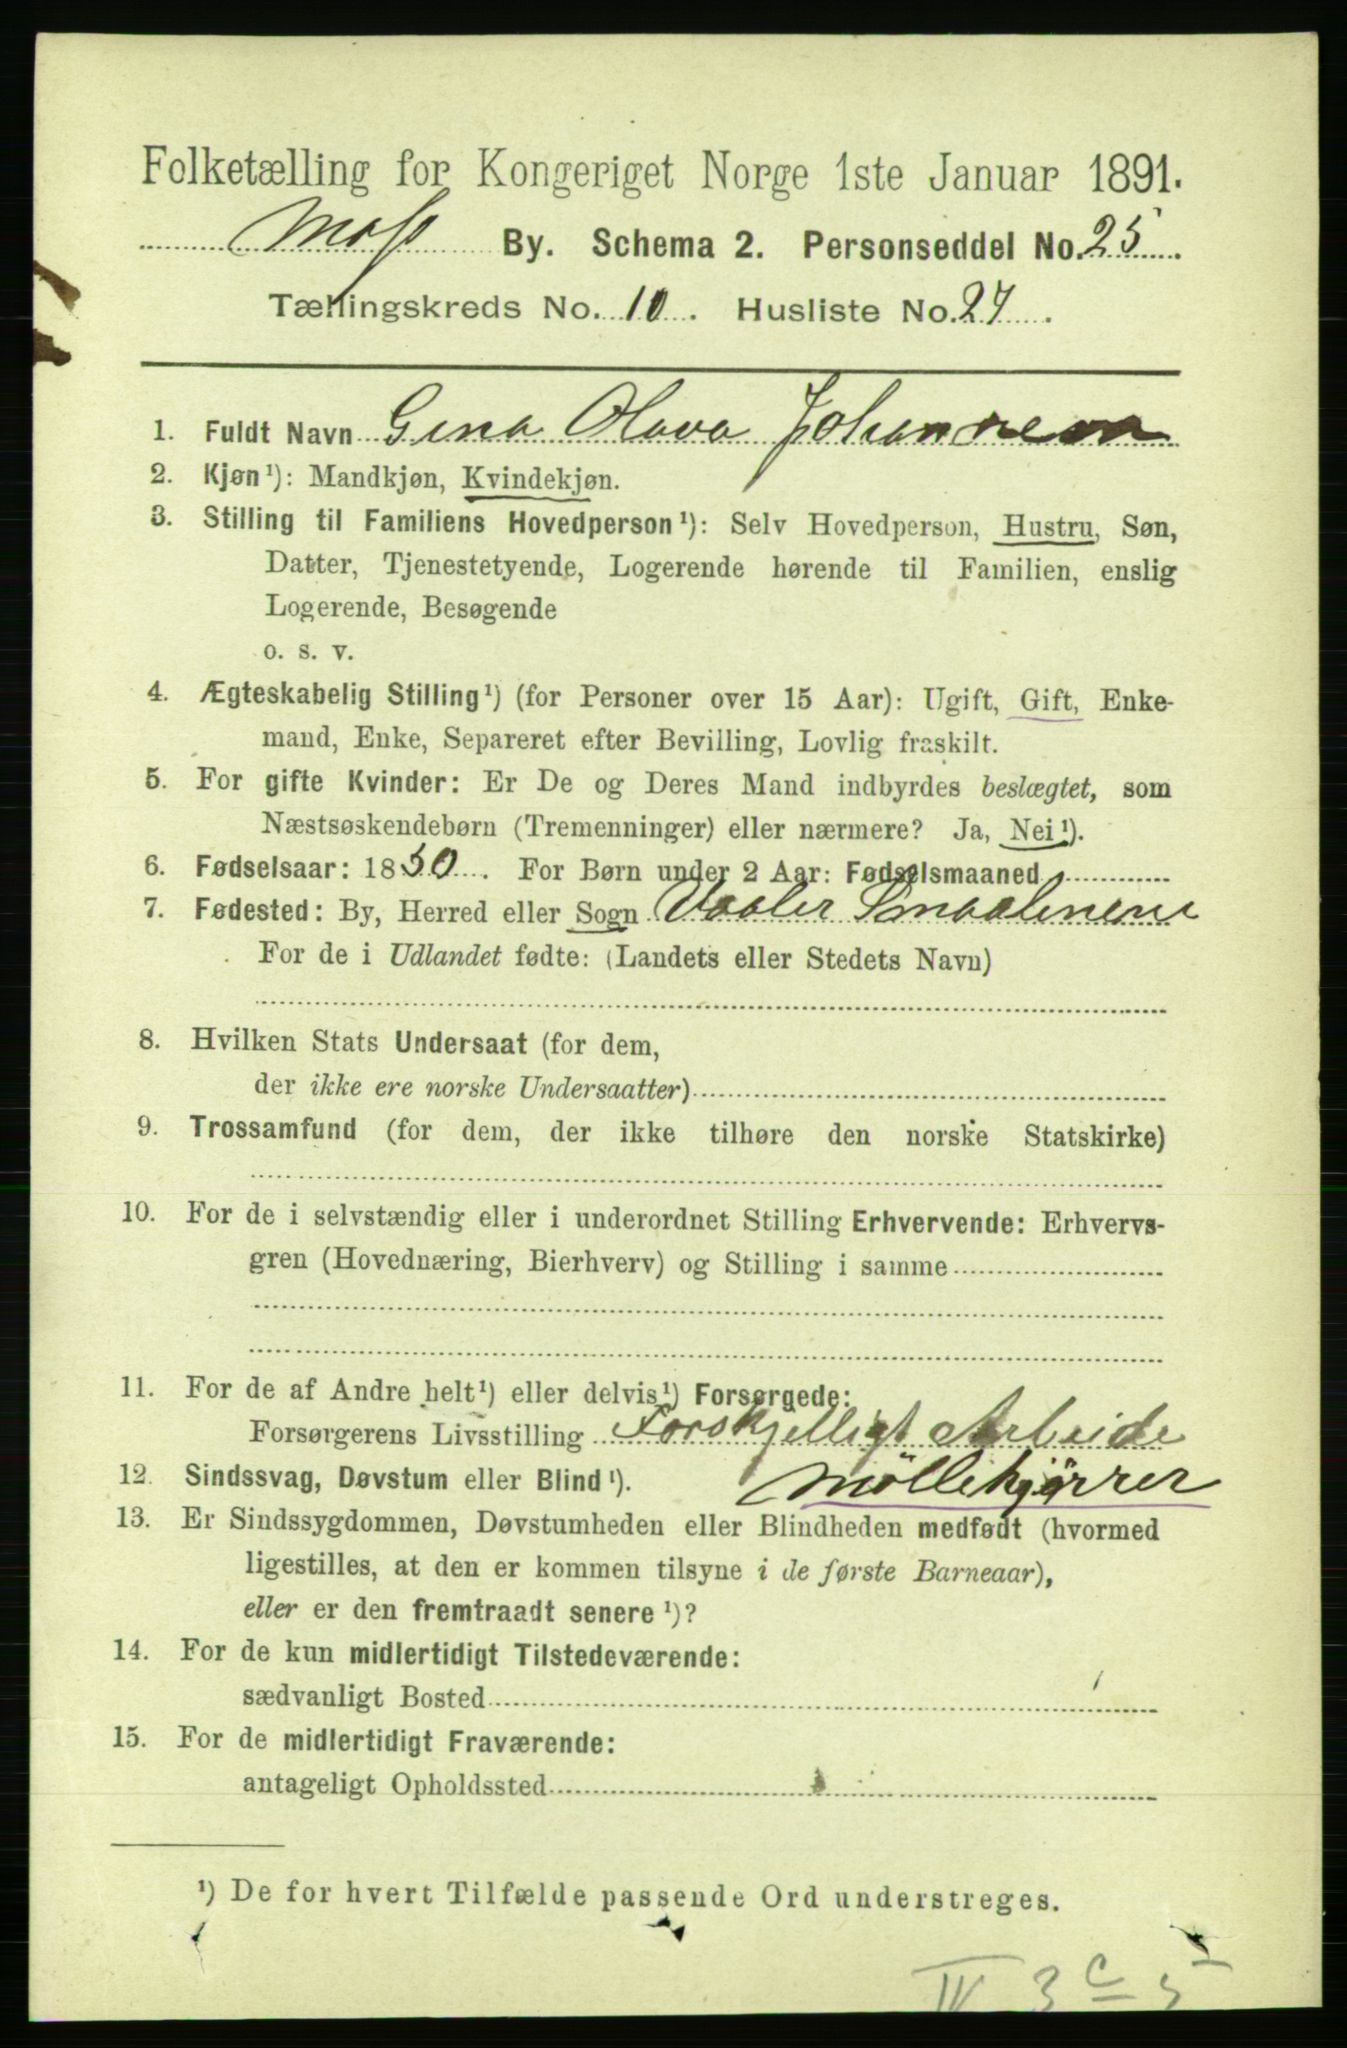 Folketælling for Kongeriget Norge 1ste Januar 1891.
Moss By. Schema 2. Personseddel No. 25
Tællingskreds No. 10. Husliste No. 27.
1. Fuldt Navn Gina Olava Johannesen
2. Kjøn¹): Mandkjøn, Kvindekjøn.
3. Stilling til Familiens Hovedperson¹): Selv Hovedperson, Hustru, Søn,
Datter, Tjenestetyende, Logerende hørende til Familien, enslig
Logerende, Besøgende
o. s. v.
4. Ægteskabelig Stilling¹) (for Personer over 15 Aar): Ugift, Gift, Enke-
mand, Enke, Separeret efter Bevilling, Lovlig fraskilt.
5. For gifte Kvinder: Er De og Deres Mand indbyrdes beslægtet, som
Næstsøskendebørn (Tremenninger) eller nærmere? Ja, Nei¹).
6. Fødselsaar: 1850. For Børn under 2 Aar: Fødselsmaaned
7. Fødested: By, Herred eller Sogn Vaaler Smaalenene
For de i Udlandet fødte: (Landets eller Stedets Navn)
8. Hvilken Stats Undersaat (for dem,
der ikke ere norske Undersaatter)
9. Trossamfund (for dem, der ikke tilhøre den norske Statskirke)
10. For de i selvstændig eller i underordnet Stilling Erhvervende: Erhvervs-
gren (Hovednæring, Bierhverv) og Stilling i samme
11. For de af Andre helt¹) eller delvis¹) Forsørgede:
Forsørgerens Livsstilling Forskjelligt Arbeide
12. Sindssvag, Døvstum eller Blind¹). Møllekjørrer
13. Er Sindssygdommen, Døvstumheden eller Blindheden medfødt (hvormed
ligestilles, at den er kommen tilsyne i de første Barneaar),
eller er den fremtraadt senere¹)?
14. For de kun midlertidigt Tilstedeværende:
sædvanligt Bosted
15. For de midlertidigt Fraværende:
antageligt Opholdssted
¹) De for hvert Tilfælde passende Ord understreges.
IV 3 c